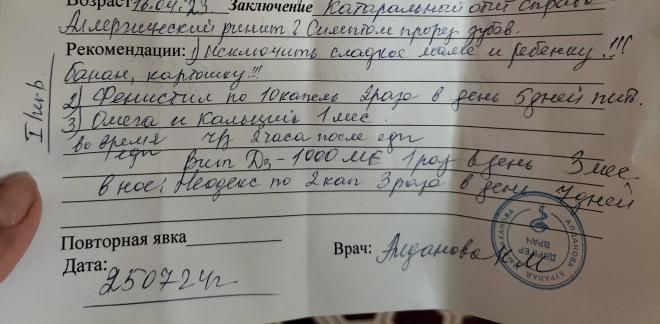 Возраст 16.04.23 Заключение Катаральный отит справа
Аллергический ринит? Симптом прорез зубов.
Рекомендации: 1) Исключить сладкое маме и ребенку!!!
банан, картошку!!!
2) Фенистил по 10 капель 2 раза в день 5 дней пить.
3) Омега и Кальций 1 мес.
во время еды чз 2 часа после еды
Вит Д3 - 1000 МЕ 1 раз в день 3 мес
в нос: Неодекс по 2 кап 3 раза в день 7 дней
I herb.
Повторная явка
Врач: Алданова К М
Дата:
250724г
АЛДАНОВА КУРАЛАЙ
ДӘРІГЕР
ВРАЧ